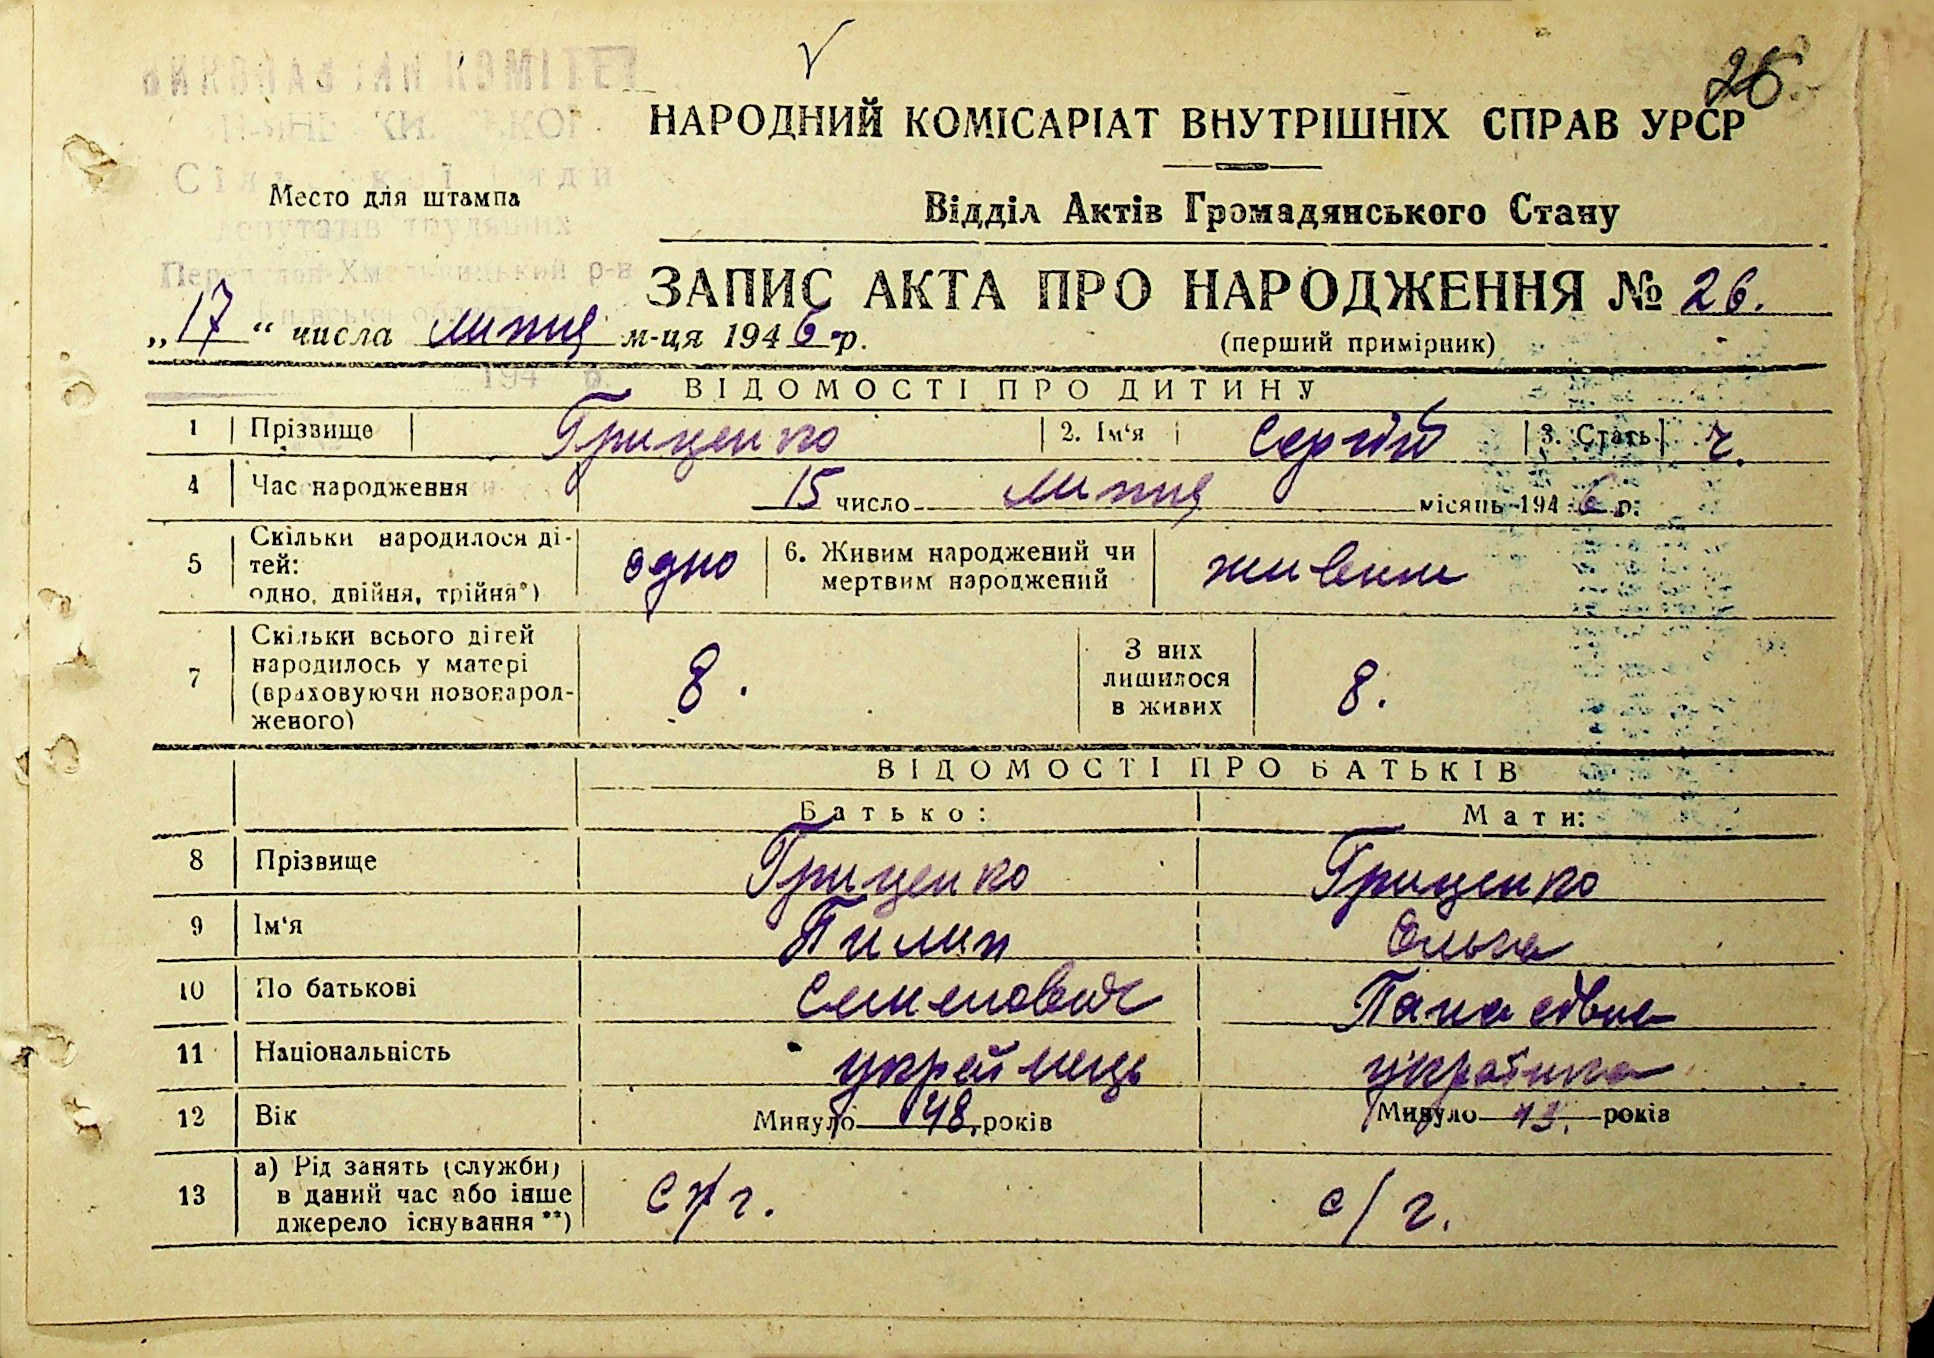 26.
НАРОДНИЙ КОМІСАРІАТ ВНУТРІШНІХ СПРАВ УРСР
Место для штампа
Відділ Актів Громадянського Стану
ЗАПИС АКТА ПРО НАРОДЖЕННЯ № 26.
„17“ числа липня м-ця 1946 р.
(перший примірник)
ВІДОМОСТІ ПРО ДИТИНУ
1 Прізвище Гриценко 2. Ім'я Сергій 3. Стать ч.
4 Час народження 15 число липня місяць 1946 р.
5 Скільки народилося ді-
тей:
одно, двійня, трійня*) одно 6. Живим народжений чи
мертвим народжений живим
7 Скільки всього дітей
народилось у матері
(враховуючи новонарод-
женого) 8. З них
лишилося
в живих 8.
ВІДОМОСТІ ПРО БАТЬКІВ
Батько: Мати:
8 Прізвище Гриценко Гриценко
9 Ім'я Пилип Ольга
10 По батькові Семенович Панасівна
11 Національність українець українка
12 Вік Минуло 48 років Минуло 43. років
13 а) Рід занять (служби)
в даний час або інше
джерело існування**) с/г. с/г.